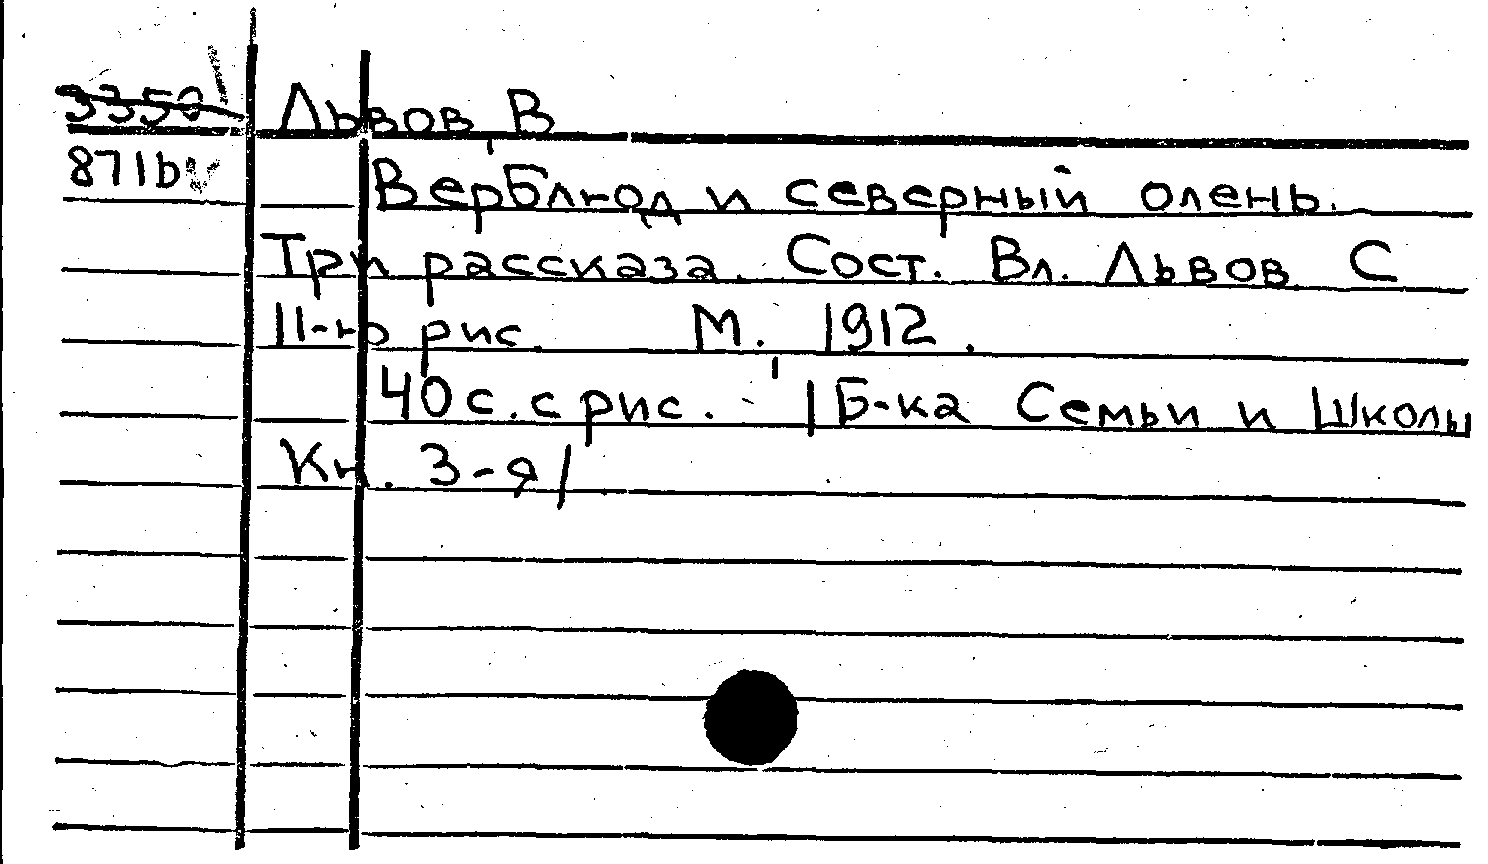 3350 Львов, В
871b Верблюд и северный олень.
Три рассказа. Сост. Вл. Львов С
11-ю рис. М., 1912.
40 с. с рис. /Б-ка Семьи и Школы
Кн. 3-я/